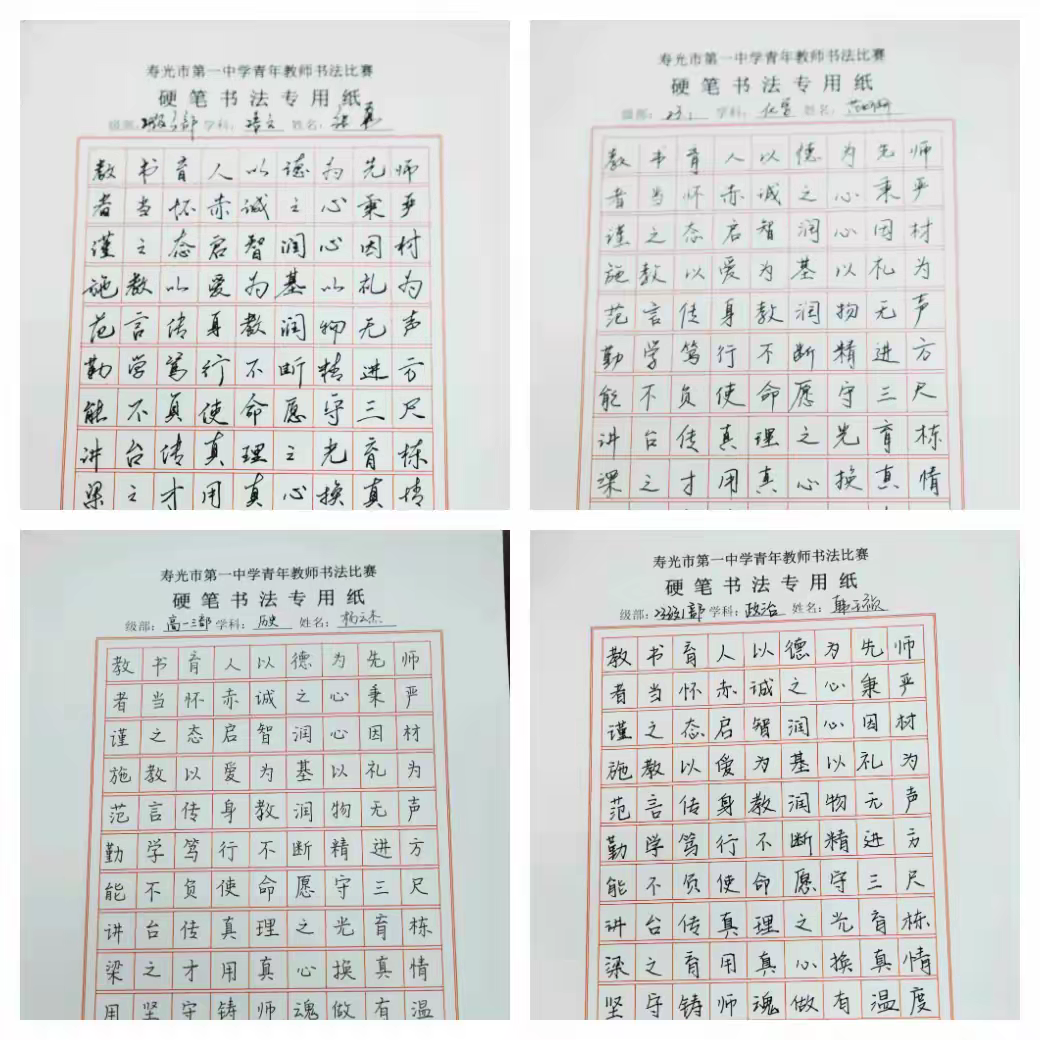 寿光市第一中学青年教师书法比赛
硬笔书法专用纸
级部: 学科: 语文 姓名:
教书育人以德为先师
者当怀赤诚之心秉严
谨之态启智润心因材
施教以爱为基以礼为
范言传身教润物无声
勤学笃行不断精进方
能不负使命愿守三尺
讲台传真理之光育栋
梁之才用真心换真情
寿光市第一中学青年教师书法比赛
硬笔书法专用纸
级部: 学科: 化学 姓名:
教书育人以德为先师
者当怀赤诚之心秉严
谨之态启智润心因材
施教以爱为基以礼为
范言传身教润物无声
勤学笃行不断精进方
能不负使命愿守三尺
讲台传真理之光育栋
梁之才用真心换真情
寿光市第一中学青年教师书法比赛
硬笔书法专用纸
级部: 高一三部 学科: 历史 姓名: 杨云杰
教书育人以德为先师
者当怀赤诚之心秉严
谨之态启智润心因材
施教以爱为基以礼为
范言传身教润物无声
勤学笃行不断精进方
能不负使命愿守三尺
讲台传真理之光育栋
梁之才用真心换真情
用坚守铸师魂做有温
寿光市第一中学青年教师书法比赛
硬笔书法专用纸
级部: 23级1部 学科: 政治 姓名:
教书育人以德为先师
者当怀赤诚之心秉严
谨之态启智润心因材
施教以爱为基以礼为
范言传身教润物无声
勤学笃行不断精进方
能不负使命愿守三尺
讲台传真理之光育栋
梁之育用真心换真情
坚守铸师魂做有温度